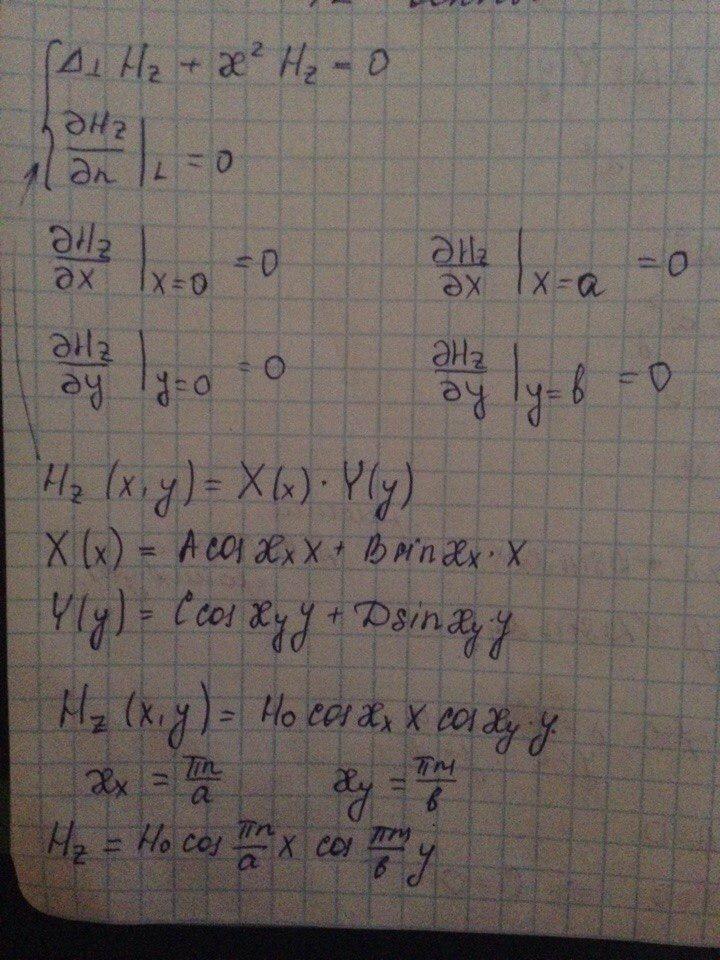 Δ⊥ Hz + æ² Hz = 0
∂Hz/∂n |L = 0
∂Hz/∂x |x=0 = 0 ∂Hz/∂x |x=a = 0
∂Hz/∂y |y=0 = 0 ∂Hz/∂y |y=b = 0
Hz (x, y) = X(x) · Y(y)
X(x) = A cos æx x + B sin æx · x
Y(y) = C cos æy y + D sin æy · y
Hz (x, y) = H0 cos æx x cos æy · y
æx = πn/a æy = πm/b
Hz = H0 cos πn/a x cos πm/b y